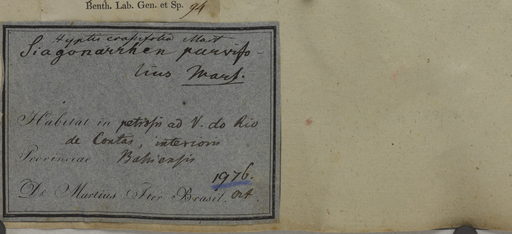 Benth. Lab. Gen. et Sp. 94
Hyptis crassifolia Mart
Siagonarrhen parvifo-
lius Mart.
Habitat in petrosis ad V. do Rio
de Contas, interioris
Provinciae Bahiensis
1976.
De Martius Iter Brasil. Oct.